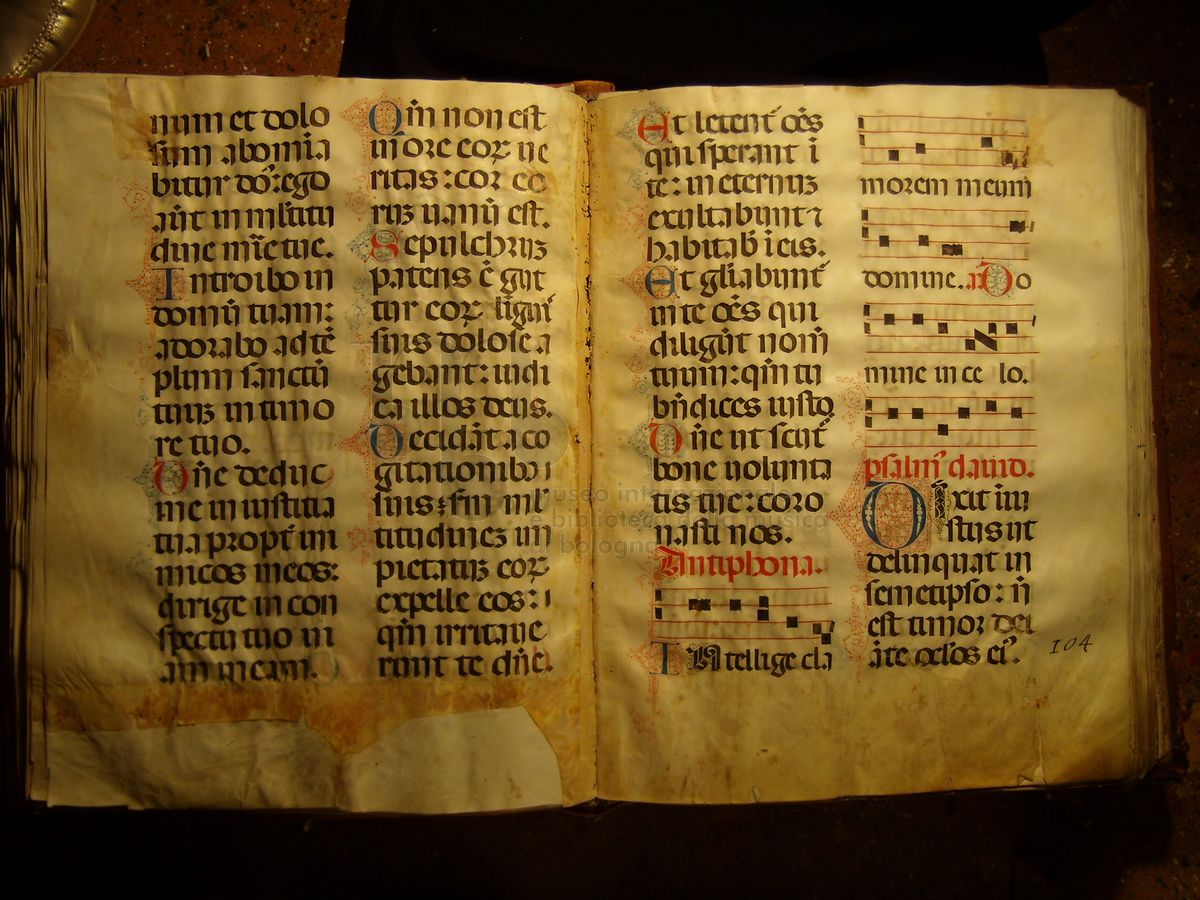 num et dolo
sum abomĩa
bitur dõ: ego
aũt in ml̃titu
dine mĩe tue.
Introibo in
domũ tuam:
adorabo ad tẽ
plum sanctũ
tuuʒ in timo
re tuo.
Dñe deduc
me in iustitia
tua propt̃ ini
micos meos:
dirige in con
spectu tuo ui
am meam.
Qm̃ non est
in ore eoꝝ ue
ritas: cor eo
ruʒ uanũ est.
Sepulchruʒ
patens ẽ gut
tur eoꝝ liguĩ
suis dolose a
gebant: iudi
ca illos deus.
Decidãt a co
gitationibꝰ
suis: fm ml̃
titudineʒ im
pietatuʒ eoꝝ
expelle eos:
qm̃ irritaue
runt te dñe.
Et letent̃ oẽs
qui sperant ĩ
te: in eternuʒ
exultabunt ⁊
habitab̃ ĩ eis.
Et gl̃iabunt̃
in te oẽs qui
diligũt nom̃
tuum: qm̃ tu
bñdices iusto
Dñe ut scut̃
bone uolunta
tis tue: coro
nasti nos.
Antiphona.
INtellige cla
morem meum
domine. a. Do
mine in ce lo.
psalm̃ dauid.
Dixit iñi
ustus ut
delinquat in
semetipso: ñ
est timor dei
ãte oclos eiꝰ.
104
museo inter
e biblioteca della musica
di bologna